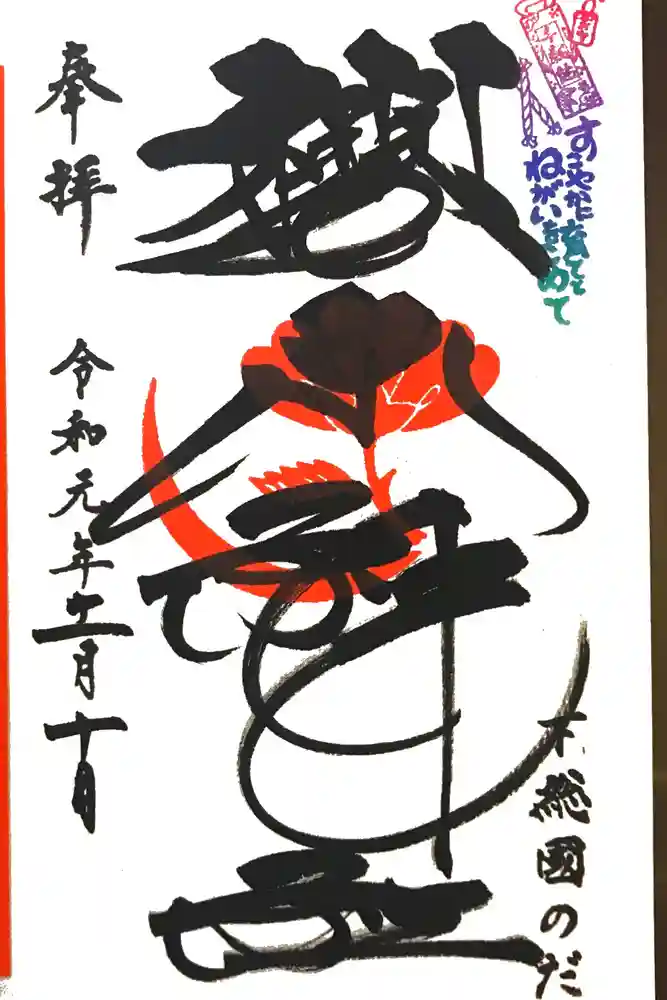 すこやかに育てと
ねがいをこめて
奉拝
櫻木神社
下総國のだ
令和元年十二月十日